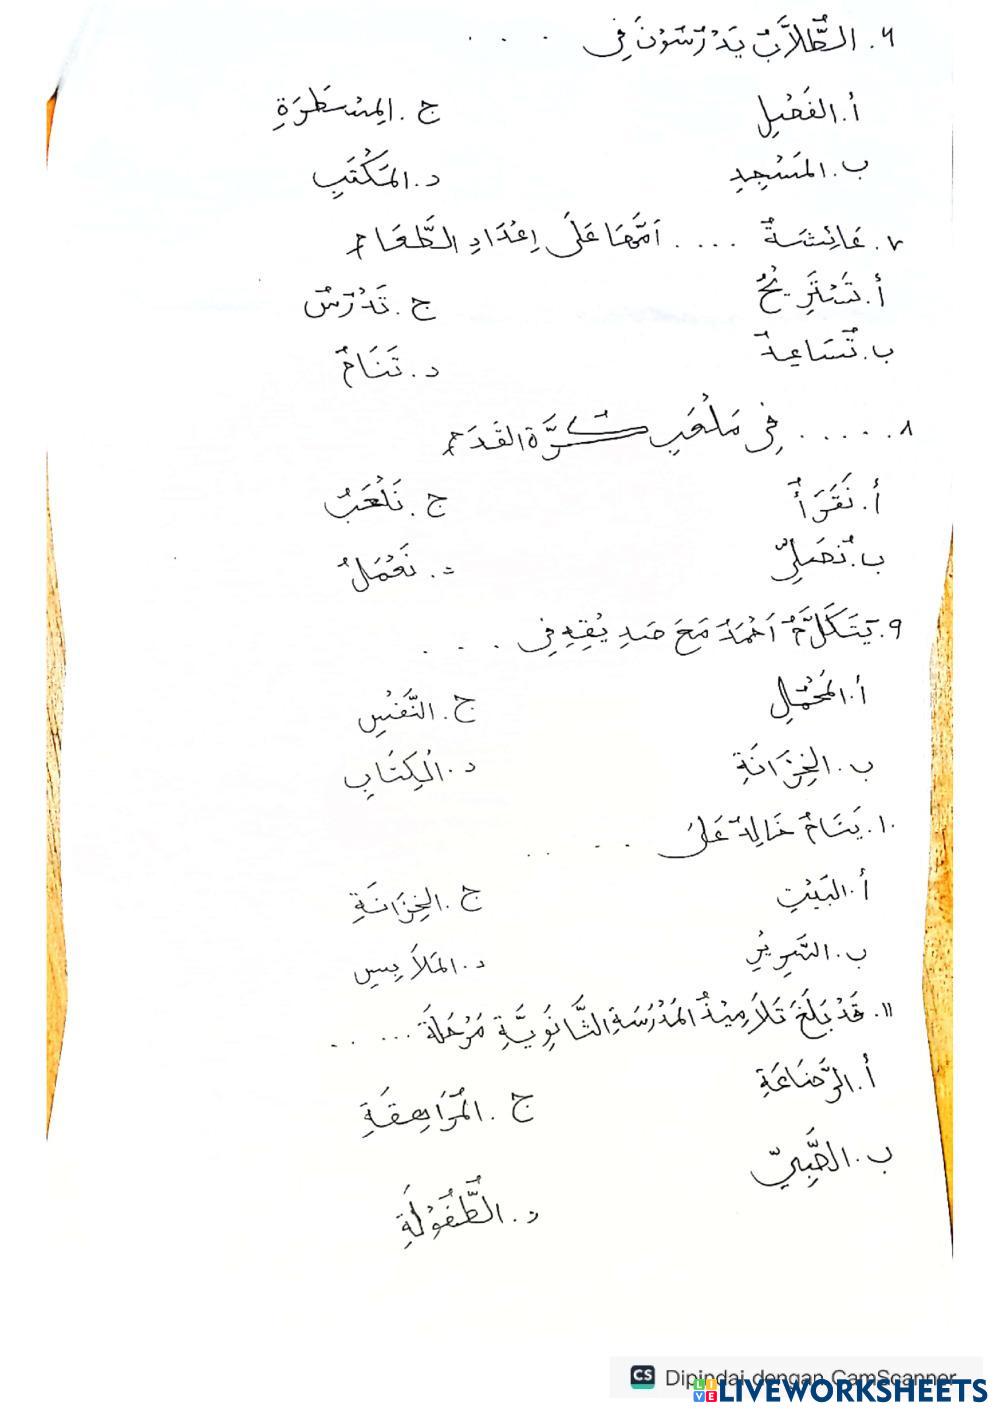 ٦. الطُّلَّابُ يَدْرُسُوْنَ فِى . . . .
أ. الفَصْلِ
ج. المِسْطَرَةِ
ب. المَسْجِدِ
د. المَكْتَبِ
٧. عَائِشَةُ .... اَمَّهَا عَلَى اِعْدَادِ الطَّعَام
أ. تَسْتَرِيْحُ
ج. تَدْرُسُ
ب. تُسَاعِدُ
د. تَنَامُ
٨. .... فِى مَلْعَبِ كُرَّة القَدَم
أ. نَقْرَأُ
ج. نَلْعَبُ
ب. نُصَلِّى
د. نَعْمَلُ
٩. يَتَكَلَّمُ اَحْمَدُ مَعَ صَدِيْقِهِ فِى . . . .
أ. المَحْمُلِ
ج. النَّفْسِ
ب. الخِزَانَةِ
د. الْكِتَابِ
١٠. يَنَامُ خَالِدٌ عَلَى . . . . .
أ. البَيْتِ
ج. الخِزَانَةِ
ب. السَّرِيْرِ
د. المَلَابِسِ
١١. قَدْ بَلَغَ تَلَامِيْذُ المَدْرَسَة الثَّانَوِيَّةِ مَرْحَلَةَ .....
أ. الرَّضَاعَةِ
ج. المُرَاهِقَةِ
ب. الصَّبِيّ
د. الطُّفُوْلَةِ
CS Dipindai dengan CamScanner
LIVEWORKSHEETS